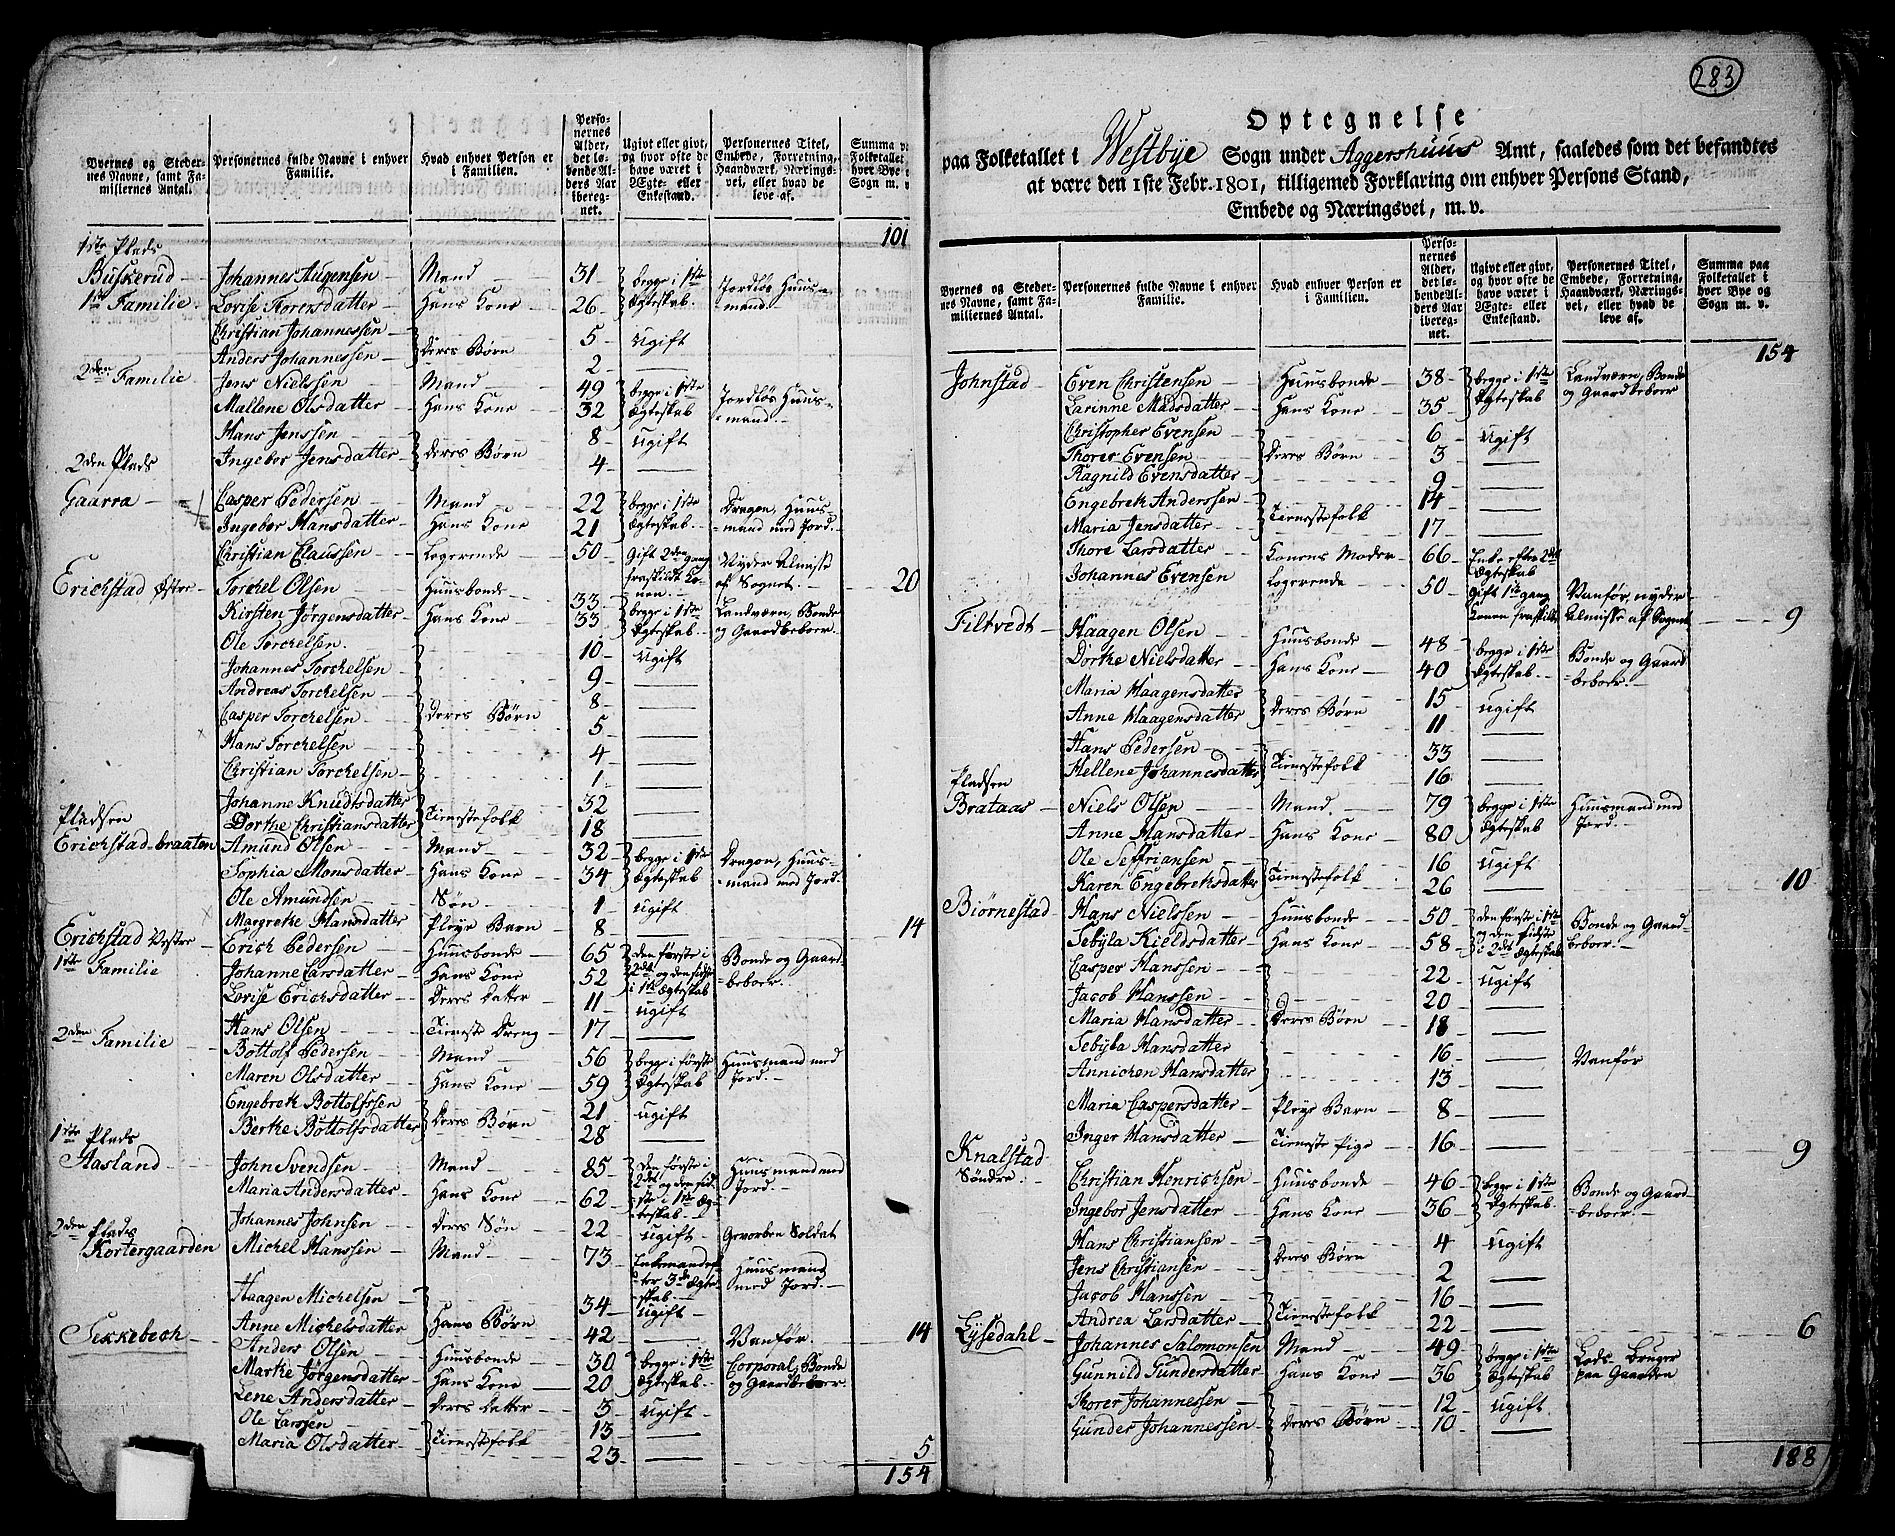 Byernes og Stedernes Navne, samt Familiernes Antal.
Personernes fulde Navne i enhver Familie.
Hvad enhver Person er i Familien.
Personernes Alder, det løbende Alders Aar iberegnet.
Ugivt eller givt, og hvor ofte de have været i Ægte- eller Enkestand.
Personernes Titel, Embede, Forretning, Haandværk, Næringsvei, eller hvad de leve af.
Summa p Folketallet hver Bye o Sogn m. v
101
1ste Plads
Buskerud Johannes Augensen Mand 31 begge i 1ste Ægteskab Jordløs Huusmand.
1ste Familie Lovise Torersdatter Hans Kone 26
Christian Johannessen Deres Børn 5 ugift
Anders Johannessen 2
2den Familie Jens Nielssen Mand 49 begge i 1ste Ægteskab Jordløs Huusmand.
Mallene Olsdatter Hans Kone 32
Hans Jenssen Deres Børn 8 ugift
Ingebor Jensdatter 4
2den Plads
Gaarra Casper Pedersen Mand 22 begge i 1ste Ægteskab Dragon, Huusmand med Jord.
Ingebor Hansdatter Hans Kone 21
Christian Claussen Logerende 50 Gift 2den gang fraskildt Konen Nyder Almisse af Sognet. 20
Erichstad Østre Torchel Olsen Huusbonde 33 begge i 1ste Ægteskab Landværn, Bonde og Gaardbeboer
Kirsten Jørgensdatter Hans Kone 33
Ole Torchelsen. Deres Børn 10 ugift
Johannes Torchelsen 9
Andreas Torchelsen 8
Casper Torchelsen 5
Hans Torchelsen 4
Christian Torchelsen 1
Johanne Knudsdatter Tienestefolk 32
Dorthe Christiansdatter 18
Pladsen
Erichstad-braaten Amund Olsen Mand 32 begge i 1ste Ægteskab Dragon, Huusmand med Jord.
Sophia Monsdatter Hans Kone 34
Ole Amundsen Søn 1 ugift
Margrethe Hansdatter Pleye Barn 8 14
Erichstad Vestre Erich Pedersen Huusbonde 65 den første i 2det og den sidste i 1ste Ægteskab Bonde og Gaardbeboer.
1ste Familie Johanne Larsdatter Hans Kone 52
Lovise Erichsdatter Deres Datter 11 ugift
Hans Olsen Tieneste Dreng 17
2den Familie Bottolf Pedersen Mand 56 begge i første Ægteskab Huusmand med Jord.
Maren Olsdatter Hans Kone 59
Engebret Bottolfssen Deres Børn 21 ugift
Berthe Bottolfsdatter 28
1ste Plads
Aasland John Svendsen Mand 85 den første i 2det og den sidste i 1ste Ægteskab Huusmand med Jord.
Maria Andersdatter Hans Kone 62
Johannes Johnsen Deres Søn 22 ugift Gevorben Soldat
2den Plads
Kortergaarden Michel Hanssen Mand 73 Enkemand efter 3de Ægteskab Huusmand med Jord.
Haagen Michelsen Hans Børn 34 ugift
Anne Michelsdatter 42 Vanför. 14
Sekkebech Anders Olsen Huusbonde 30 begge i 1ste Ægteskab Corporal, Bonde og Gaardbeboer.
Marthe Jørgensdatter Hans Kone 20
Lene Andersdatter Deres Datter 3 ugift
Ole Larssen Tienestefolk 13
Maria Olsdatter 23 5
154
283
Optegnelse
paa Folketallet i Westbye Sogn under Aggershuus Amt, saaledes som det befandtes
at være den 1ste Febr. 1801, tilligemed Forklaring om enhver Persons Stand,
Embede og Næringsvei, m. v.
Byernes og Stedernes Navne, samt Familiernes Antal.
Personernes fulde Navne i enhver Familie.
Hvad enhver Person er i Familien.
Personernes Alder, det løbende Alders Aar iberegnet.
Ugivt eller givt, og hvor ofte de have været i Ægte- eller Enkestand.
Personernes Titel, Embede, Forretning, Haandværk, Næringsvei, eller hvad de leve af.
Summa paa Folketallet i hver Bye og Sogn m. v.
154
Johnstad Even Christensen Huusbonde 38 begge i 1ste Ægteskab Landværn, Bonde og Gaardbeboer
Larinne Madsdatter Hans Kone 35
Christopher Evensen Deres Børn 6 ugift
Thorer Evensen 3
Ragnild Evensdatter 9
Engebret Anderssen Tienestefolk 14
Maria Jensdatter 17
Thore Larsdatter Konens Moder 66 Enke efter 2det Ægteskab
Johannes Evensen Logerende 50 Gift 1ste gang Konen fraskildt Vanför, nyder Almisse af Sognet 9
Filtvedt Haagen Olsen Huusbonde 48 begge i 1ste Ægteskab Bonde og Gaardbeboer.
Dorthe Nielsdatter Hans Kone 40
Maria Haagensdatter Deres Børn 15 ugift
Anne Haagensdatter 11
Hans Pedersen Tienestefolk 33
Hellene Johannesdatter 16
Pladsen
Brataas Niels Olsen Mand 79 begge i 1ste Ægteskab Huusmand med Jord.
Anne Hansdatter Hans Kone 80
Ole Seffriansen Tienestefolk 16 ugift
Karen Engebretsdatter 26 10
Biørnestad Hans Nielssen Huusbonde 50 den første i 1ste og den sidste i 2det Ægteskab Bonde og Gaardbeboer.
Sebÿla Kieldsdatter Hans Kone 58
Casper Hanssen Deres Børn 22 ugift
Jacob Hanssen 20
Maria Hansdatter 18
Sebÿla Hansdatter 16 Vanför
Annichen Hansdatter 13
Maria Caspersdatter Pleye Barn 8
Inger Hansdatter Tieneste Pige 16 9
Knalstad Søndre. Christian Henrichsen Huusbonde 46 begge i 1ste Ægteskab Bonde og Gaardbeboer.
Ingebor Jensdatter Hans Kone 36
Hans Christiansen Deres Børn 4 ugift
Jens Christiansen 2
Jacob Hanssen Tienestefolk 16
Andrea Larsdatter 22 6
Lÿsedahl Johannes Salomonsen Mand 49 begge i 1ste Ægteskab Lods Bruger paa Gaarden
Gunnild Gundersdatter Hans Kone 36
Thorer Johannessen Deres Børn 12 ugift
Gunder Johannessen 10
188